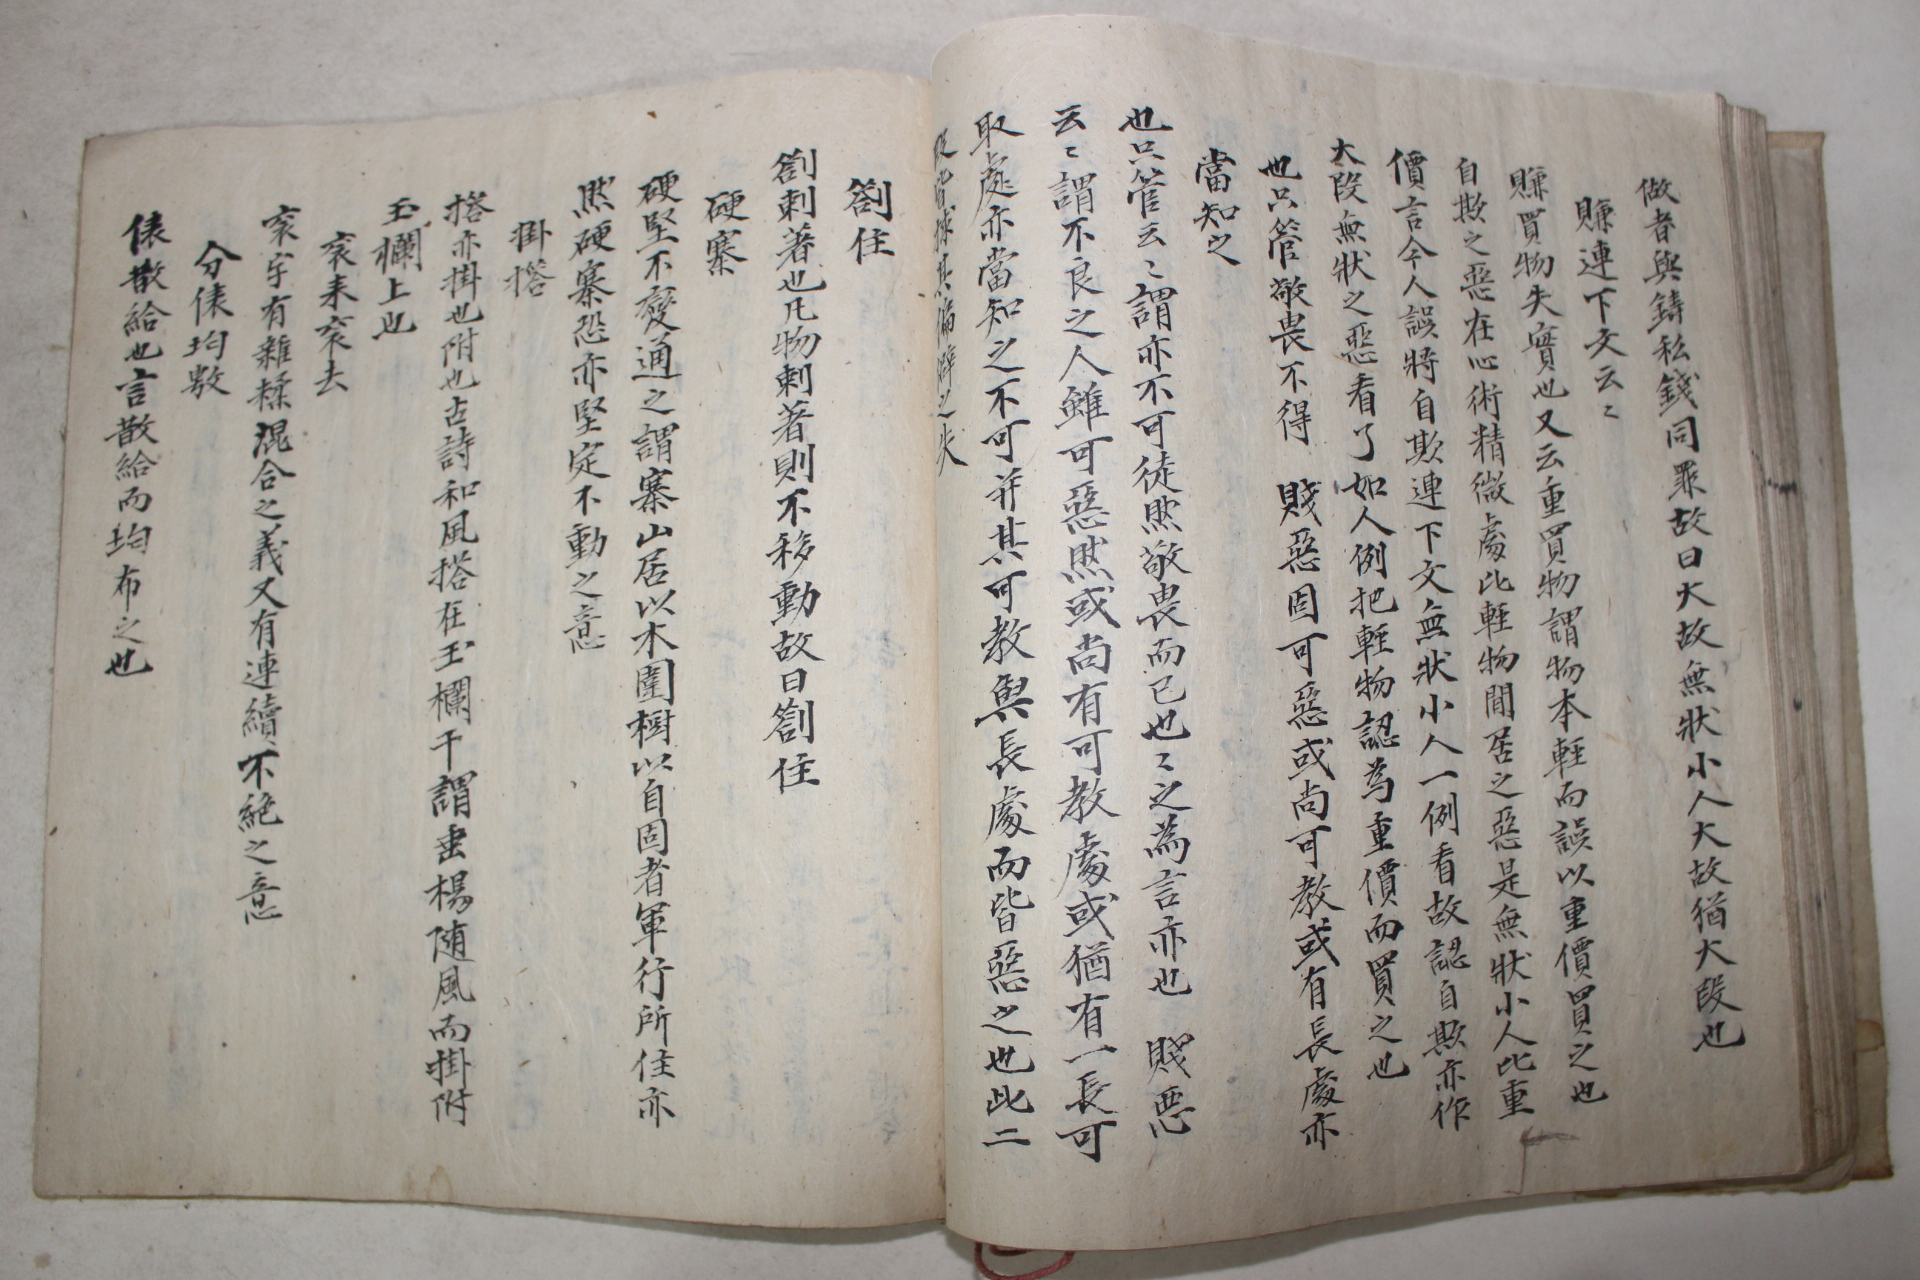 做者與鑄私錢同罪故曰大故無狀小人大故猶大段也
賺連下文云〻
賺買物失實也又云重買物謂物本輕而誤以重價買之也
自欺之惡在心術精微處比輕物閒居之惡是無狀小人比重
價言今人誤將自欺連下文無狀小人一例看故認自欺亦作
大段無狀之惡看了如人例把輕物認為重價而買之也
也只管敬畏不得 賤惡固可惡或尚可教或有長處亦
當知之
也只管云〻謂亦不可徒然敬畏而已也〻之為言亦也 賤惡
云〻謂不良之人雖可惡然或尚有可教處或猶有一長可
取處亦當知之不可并其可教與長處而皆惡之也此二
段皆揉其偏僻之失
劄住
劄刺著也凡物刺著則不移動故曰劄住
硬寨
硬堅不變通之謂寨山居以木圍樹以自固者軍行所住亦
然硬寨恐亦堅定不動之意
掛搭
搭亦掛也附也古詩和風搭在玉欄干謂垂楊随風而掛附
玉欄上也
衮来衮去
衮字有雜糅混合之義又有連續不絶之意
分俵均敷
俵散給也言散給而均布之也